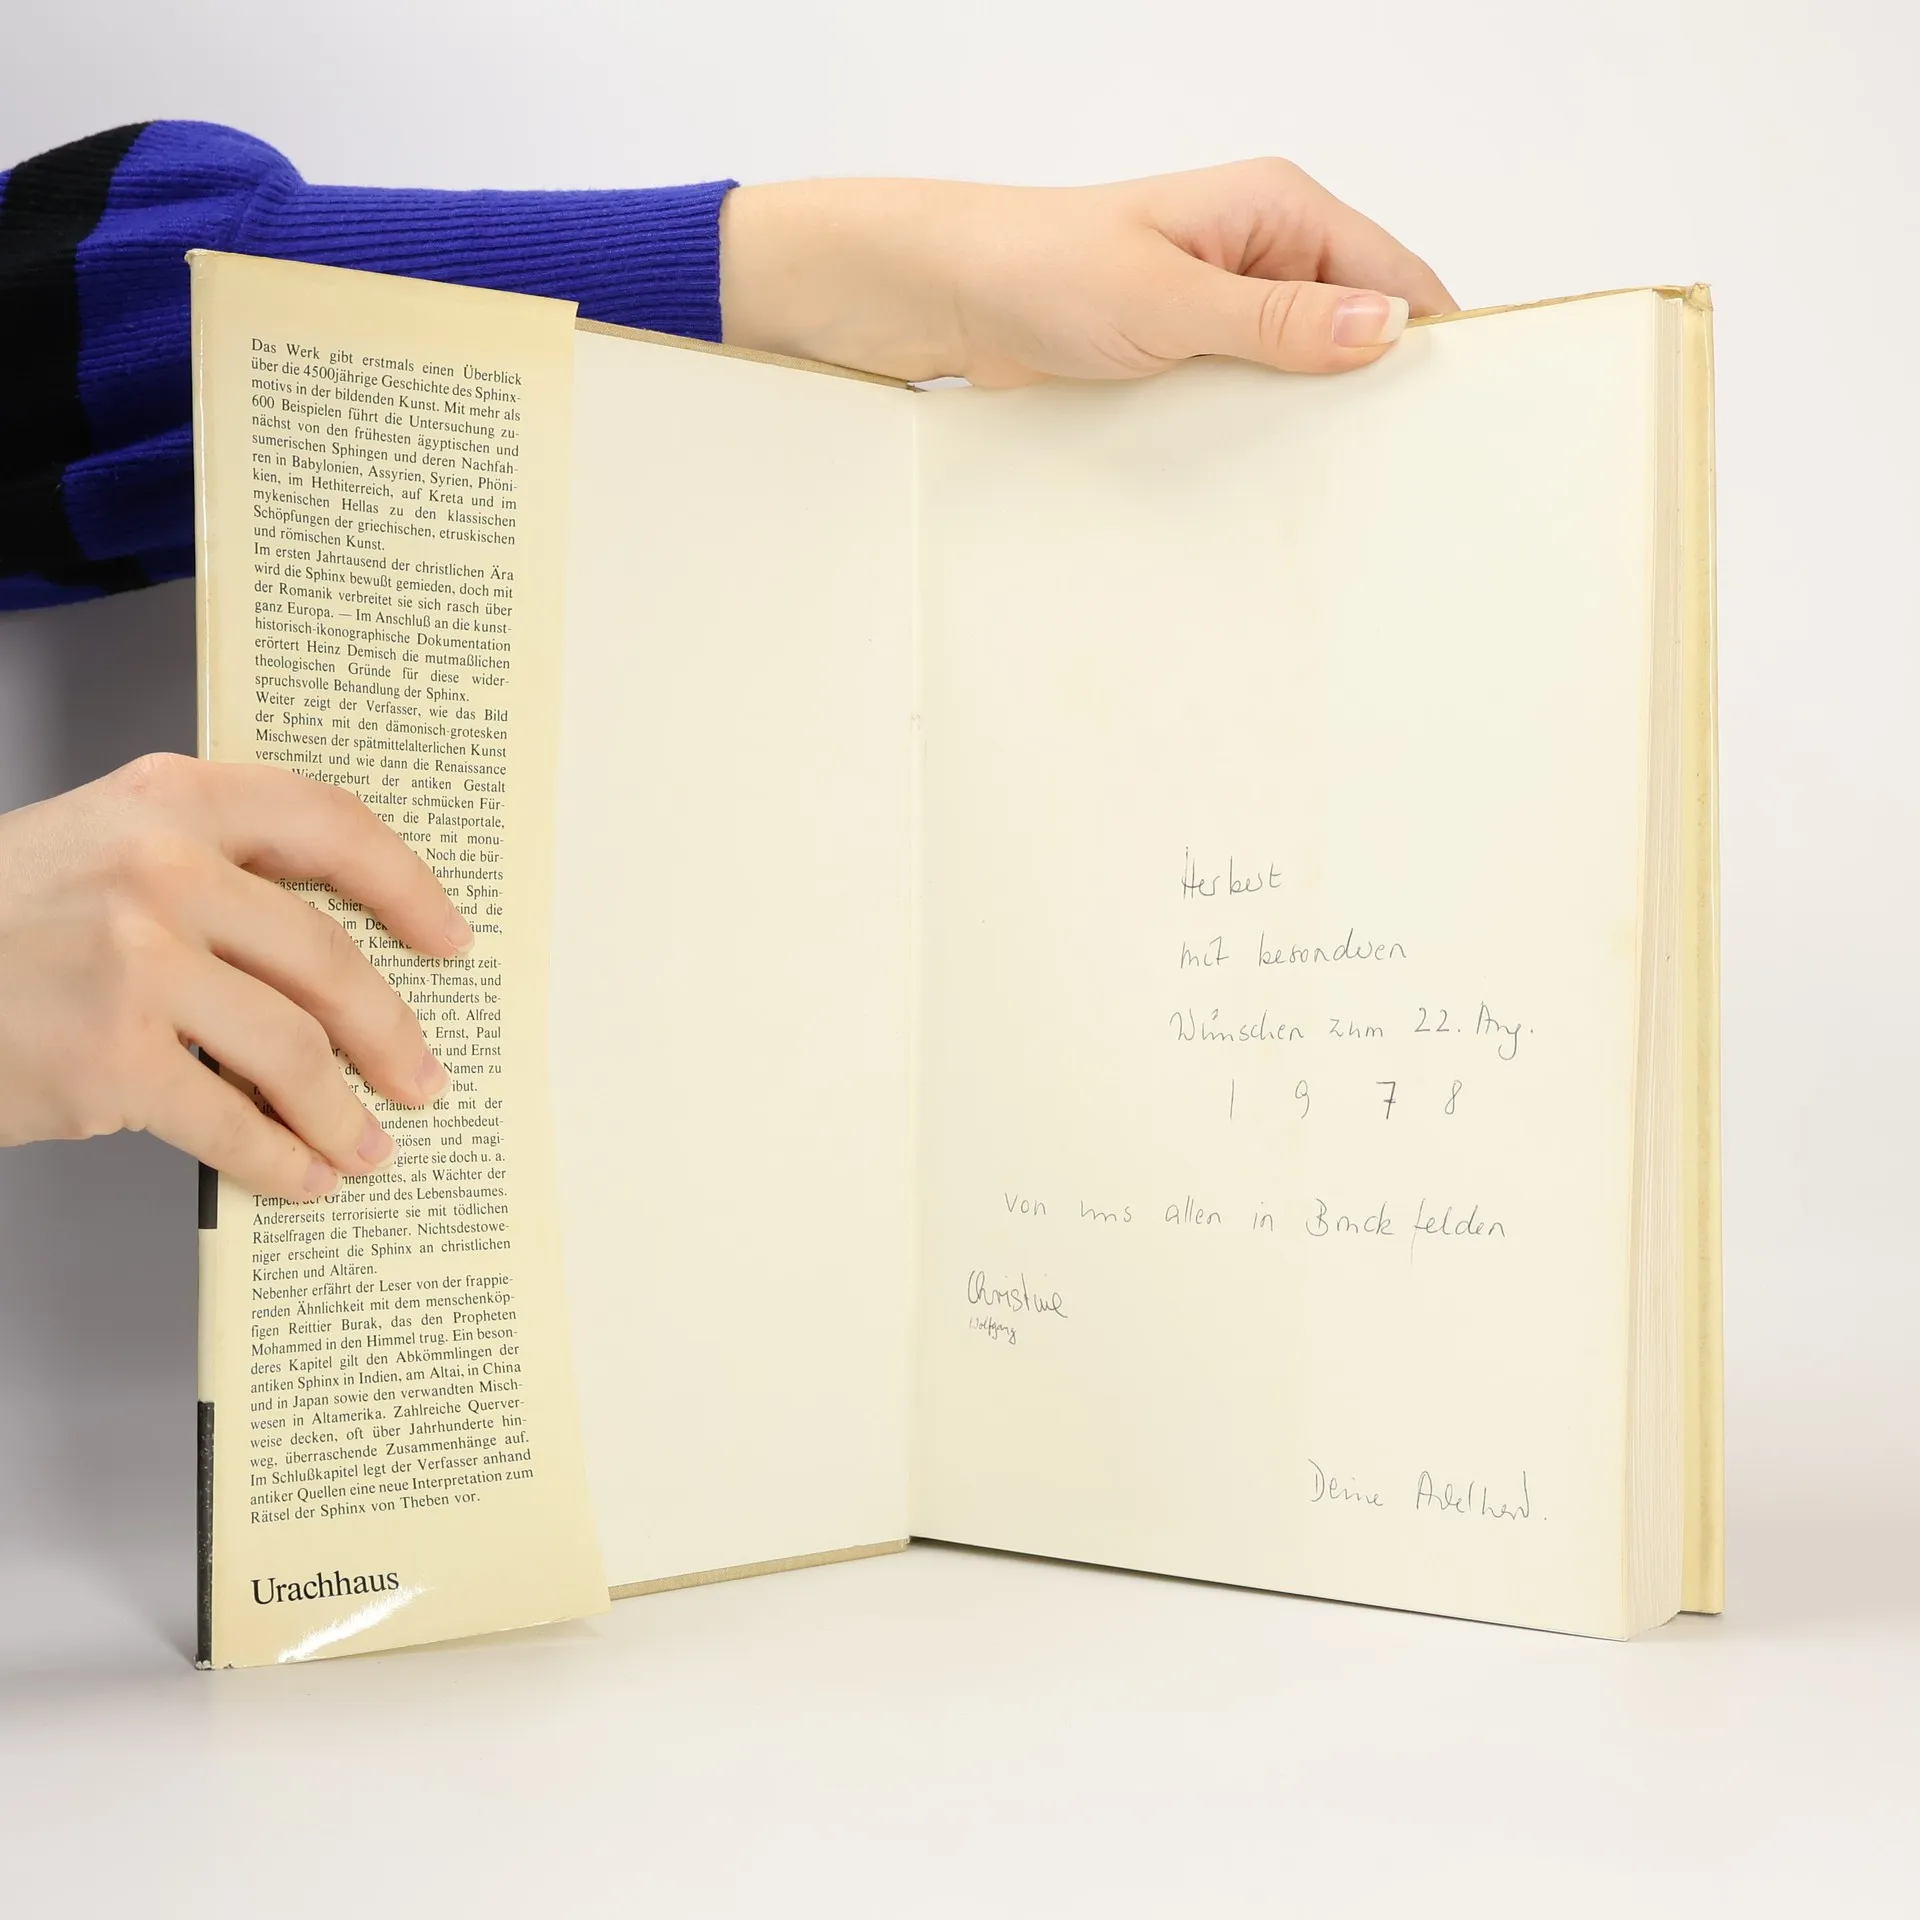 Das Werk gibt erstmals einen Überblick
über die 4500jährige Geschichte des Sphinx-
motivs in der bildenden Kunst. Mit mehr als
600 Beispielen führt die Untersuchung zu-
nächst von den frühesten ägyptischen und
sumerischen Sphingen und deren Nachfah-
ren in Babylonien, Assyrien, Syrien, Phöni-
kien, im Hethiterreich, auf Kreta und im
mykenischen Hellas zu den klassischen
Schöpfungen der griechischen, etruskischen
und römischen Kunst.
Im ersten Jahrtausend der christlichen Ära
wird die Sphinx bewußt gemieden, doch mit
der Romanik verbreitet sie sich rasch über
ganz Europa. — Im Anschluß an die kunst-
historisch-ikonographische Dokumentation
erörtert Heinz Demisch die mutmaßlichen
theologischen Gründe für diese wider-
spruchsvolle Behandlung der Sphinx.
Weiter zeigt der Verfasser, wie das Bild
der Sphinx mit den dämonisch-grotesken
Mischwesen der spätmittelalterlichen Kunst
verschmilzt und wie dann die Renaissance
Wiedergeburt der antiken Gestalt
kzeitalter schmücken Für-
ren die Palastportale,
entore mit monu-
Noch die bür-
Jahrhunderts
äsentieren en Sphin-
Schier sind die
im De äume,
er Kleink
Jahrhunderts bringt zeit-
Sphinx-Themas, und
Jahrhunderts be-
lich oft. Alfred
x Ernst, Paul
ini und Ernst
die Namen zu
er Sp ribut.
erläutern die mit der
undenen hochbedeut-
giösen und magi-
gierte sie doch u. a.
nnengottes, als Wächter der
Tempel, der Gräber und des Lebensbaumes.
Andererseits terrorisierte sie mit tödlichen
Rätselfragen die Thebaner. Nichtsdestowe-
niger erscheint die Sphinx an christlichen
Kirchen und Altären.
Nebenher erfährt der Leser von der frappie-
renden Ähnlichkeit mit dem menschenköp-
figen Reittier Burak, das den Propheten
Mohammed in den Himmel trug. Ein beson-
deres Kapitel gilt den Abkömmlingen der
antiken Sphinx in Indien, am Altai, in China
und in Japan sowie den verwandten Misch-
wesen in Altamerika. Zahlreiche Querver-
weise decken, oft über Jahrhunderte hin-
weg, überraschende Zusammenhänge auf.
Im Schlußkapitel legt der Verfasser anhand
antiker Quellen eine neue Interpretation zum
Rätsel der Sphinx von Theben vor.
Urachhaus
Herbert
mit besonderen
Wünschen zum 22. Aug.
1 9 7 8
von uns allen in Bruckfelden
Christine
Wolfgang
Deine Adelheid.